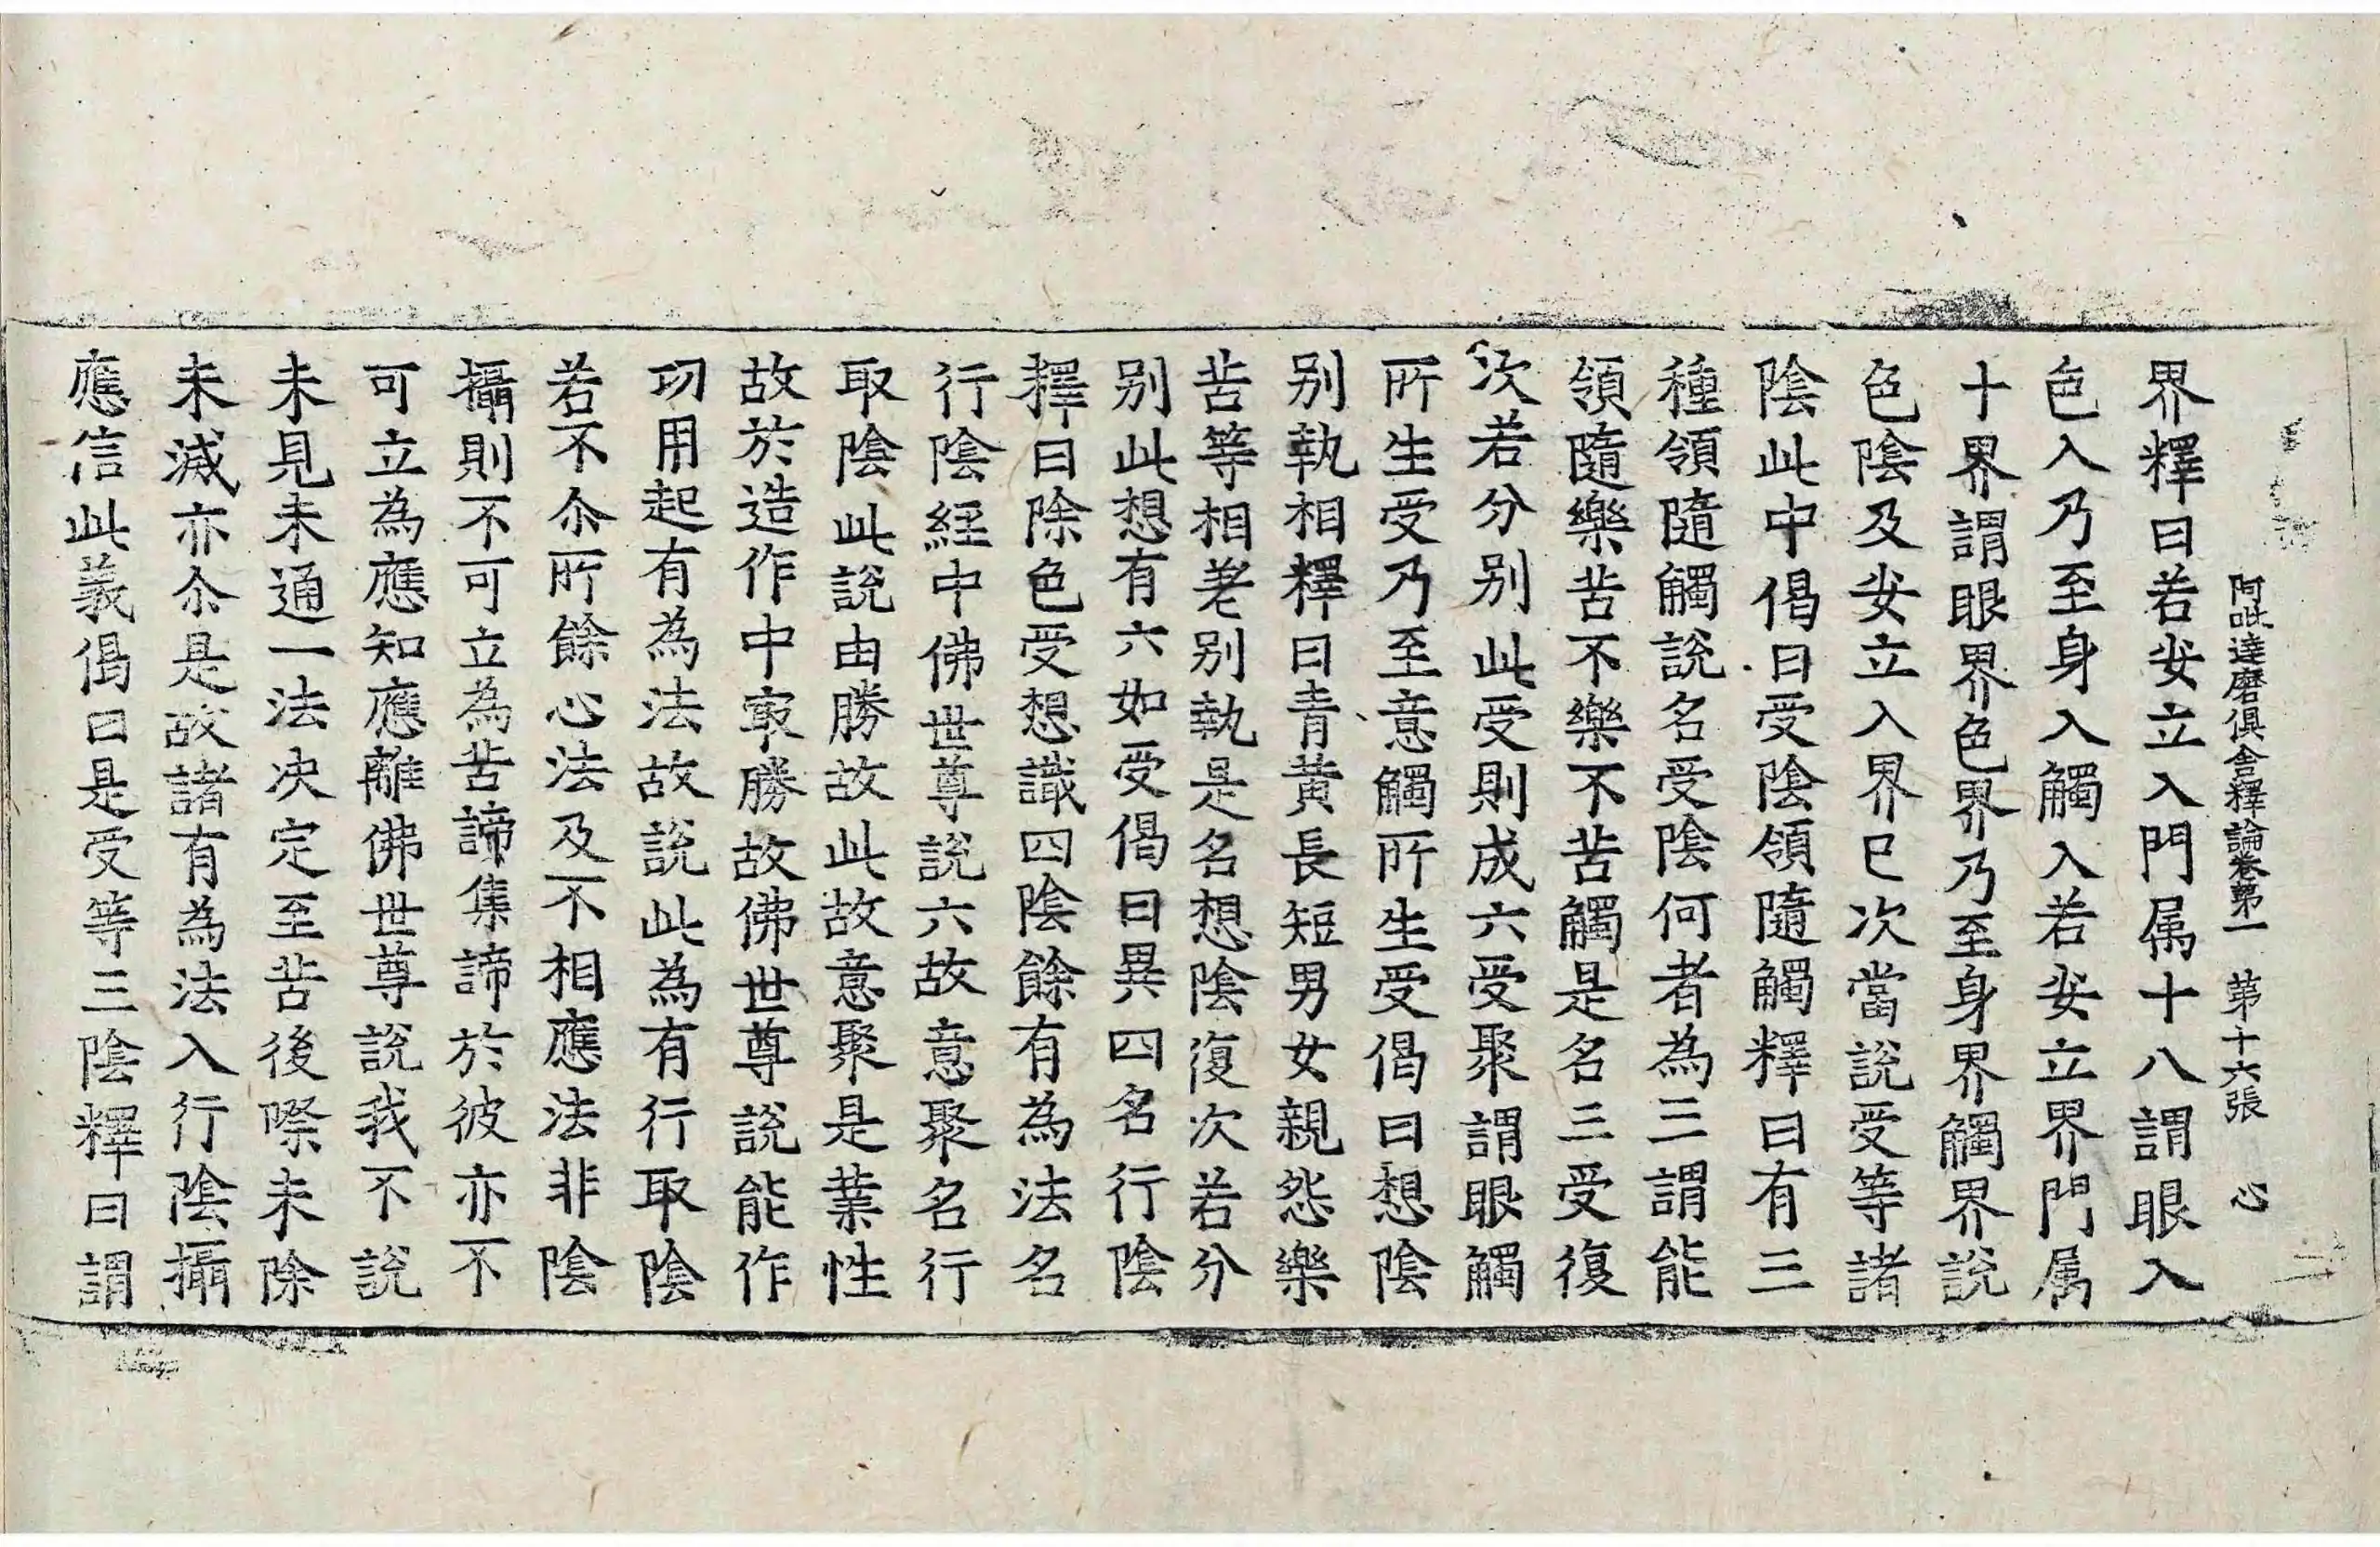 阿毗達磨俱舍釋論卷第一　第十六張　心
界釋曰若安立入門属十八謂眼入
色入乃至身入觸入若安立界門属
十界謂眼界色界乃至身界觸界說
色陰及安立入界已次當說受等諸
陰此中偈曰受陰領隨觸釋曰有三
種領隨觸說名受陰何者為三謂能
領隨樂苦不樂不苦觸是名三受復
次若分别此受則成六受聚謂眼觸
所生受乃至意觸所生受偈曰想陰
别執相釋曰青黃長短男女親怨樂
苦等相差别執是名想陰復次若分
别此想有六如受偈曰異四名行陰
釋曰除色受想識四陰餘有為法名
行陰經中佛世尊說六故意聚名行
取陰此說由勝故此故意聚是業性
故於造作中㝡勝故佛世尊說能作
功用起有為法故說此為有行取陰
若不尒所餘心法及不相應法非陰
攝則不可立為苦諦集諦於彼亦不
可立為應知應離佛世尊說我不說
未見未通一法决定至苦後際未除
未滅亦尒是故諸有為法入行陰攝
應信此義偈曰是受等三陰釋曰謂